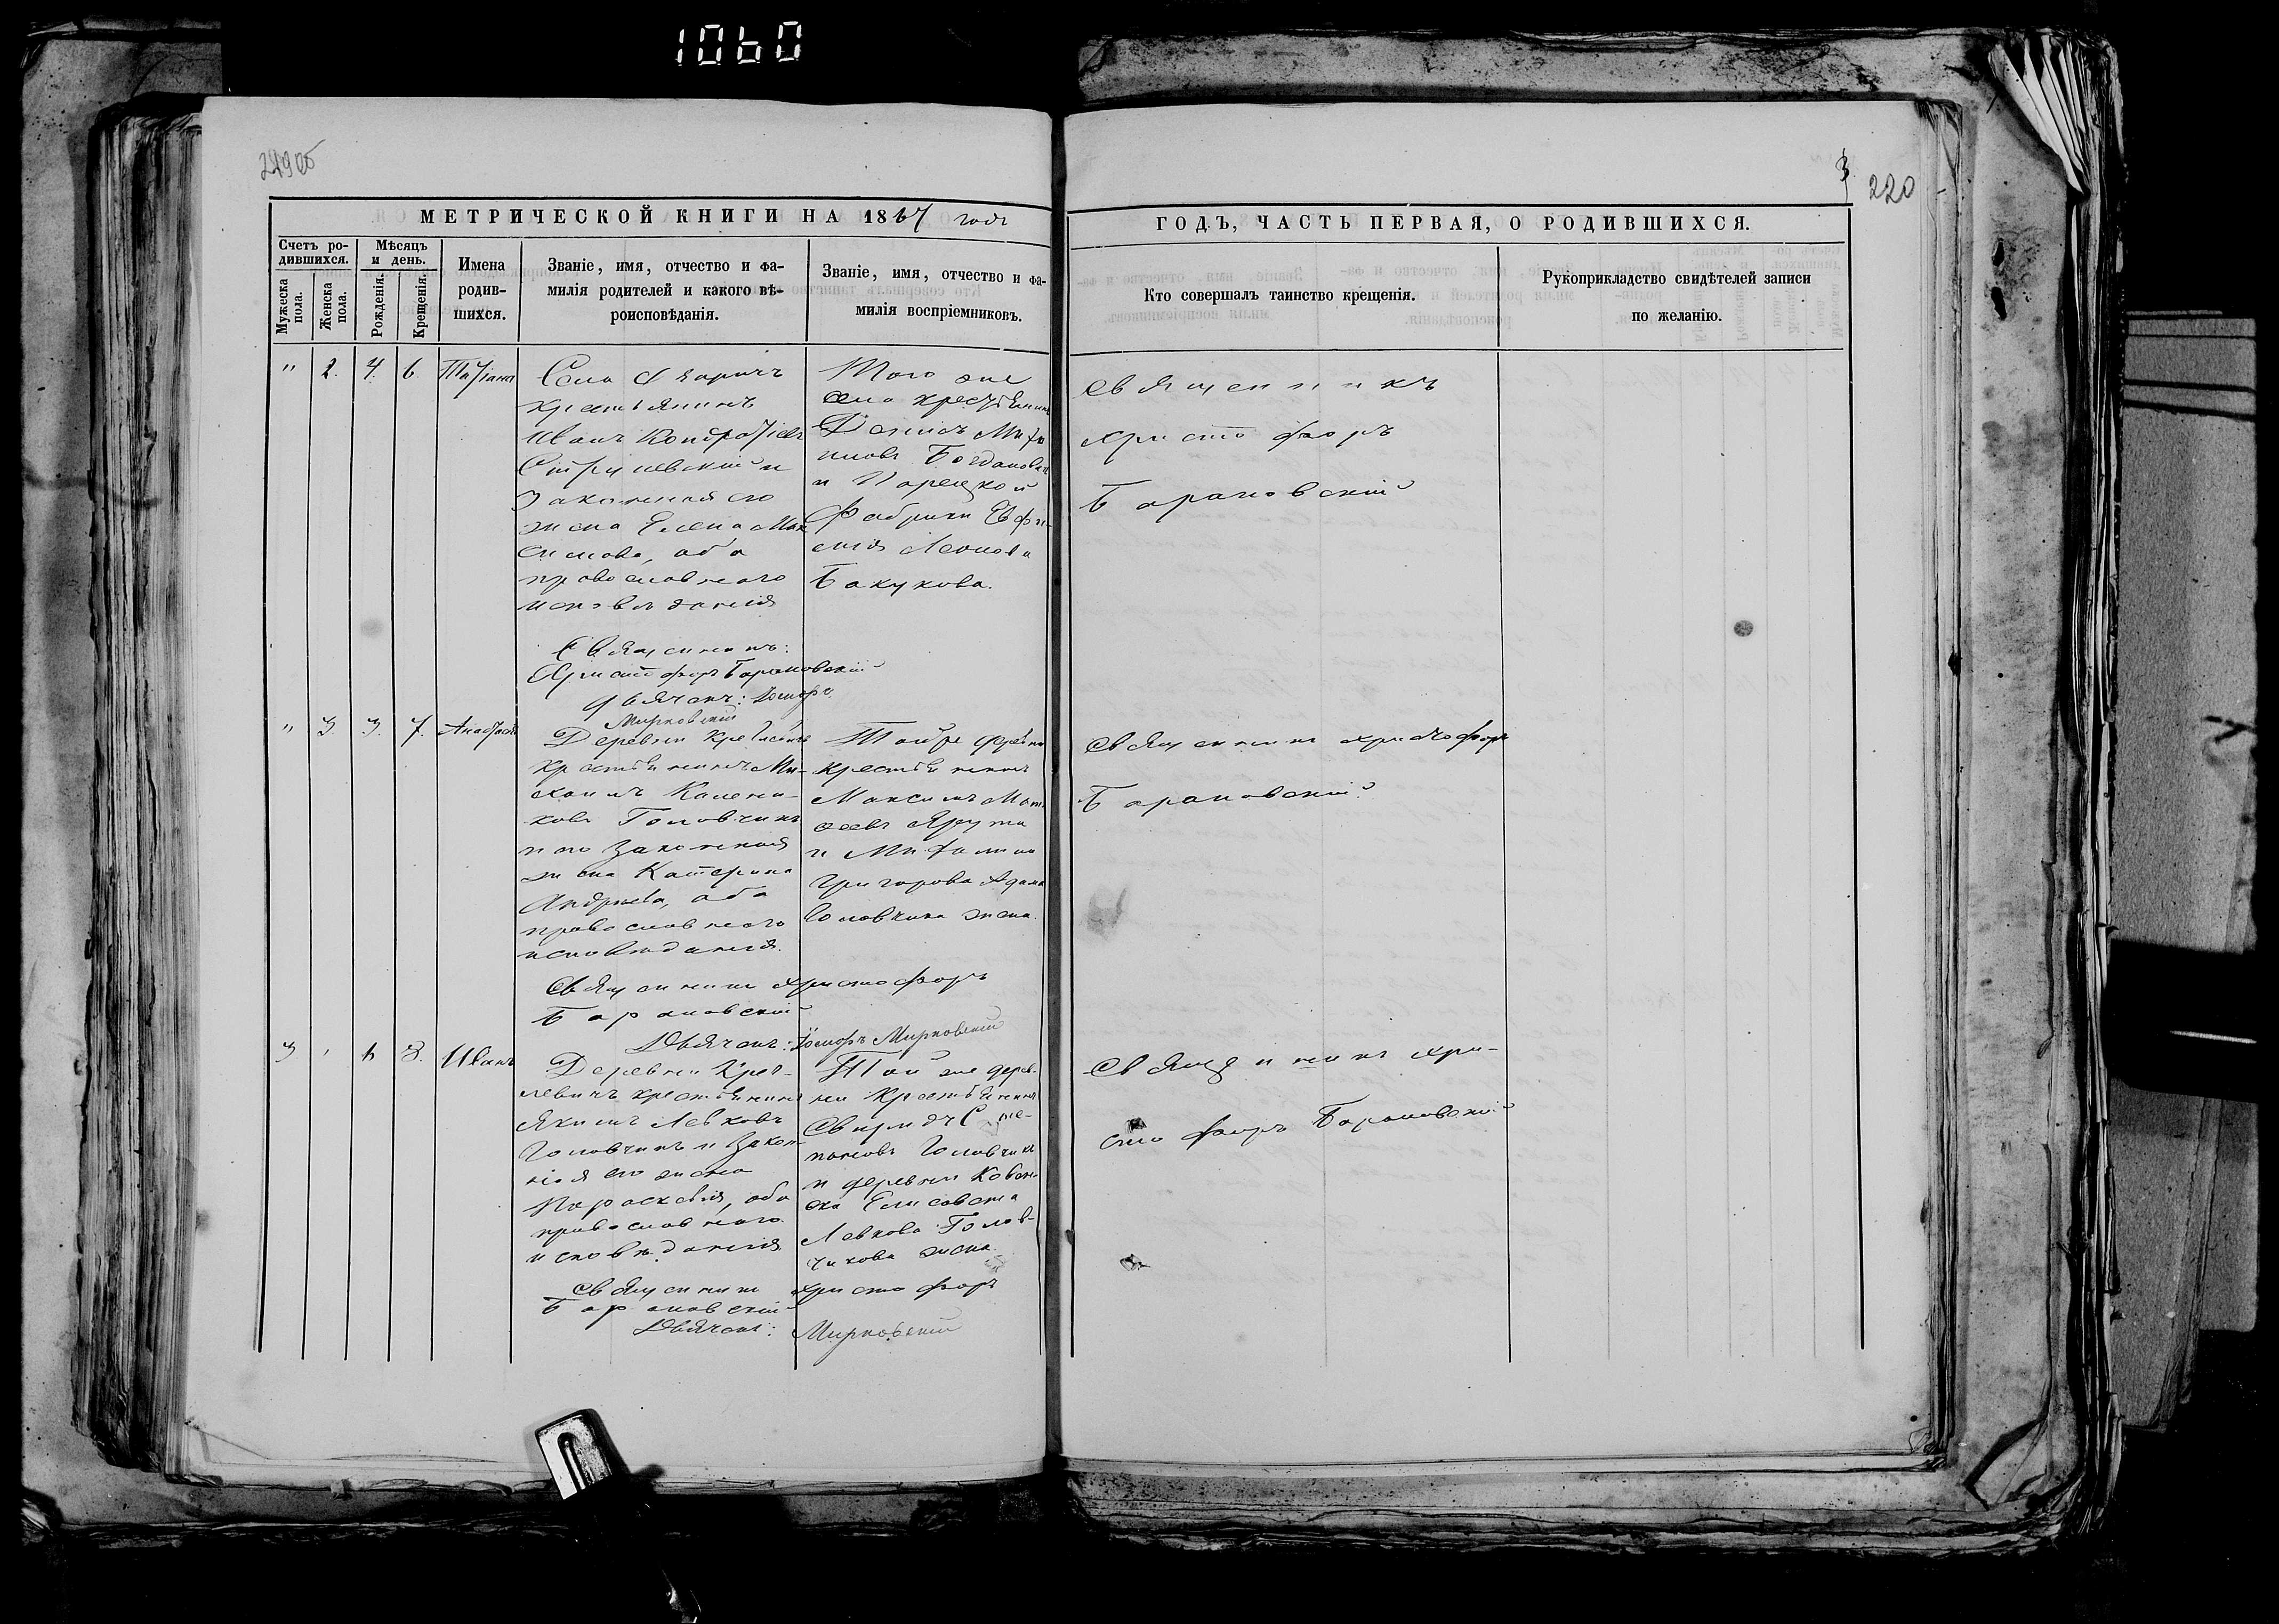 1060
220
3
МЕТРИЧЕСКОЙ КНИГИ НА 1867 годъ
ГОДЪ, ЧАСТЬ ПЕРВАЯ, О РОДИВШИХСЯ.
Счетъ ро-
дившихся.
Мужеска пола.
Женска пола.
Мѣсяцъ
и день.
Рожденія.
Крещенія.
Имена
родив-
шихся.
Званіе, имя, отчество и фа-
милія родителей и какого вѣ-
роисповѣданія.
Званіе, имя, отчество и фа-
милія воспріемниковъ.
Кто совершалъ таинство крещенія.
Рукоприкладство свидѣтелей записи
по желанію.
" 2. 4. 6. Татіана
Села
крестьянинъ
Иванъ Кондратіевъ
и
Законная его
жена Елена Мак
симова, оба
православнаго
исповѣданія
Священникъ:
Христофоръ Барановскій
Дьячекъ:
Мирковскій
Того же
села крестьянинъ
Денисъ
Богданович
и Парецкой
Фабрики Евфи-
мія Леонова
Бакукова.
Священникъ
Христофоръ
Барановскій
" 3. 3. 7. Анастасія
Деревни
крестьянинъ Ми-
хаилъ Калени-
ковъ Головчикъ
и его законная
жена Катерина
Андреева, оба
православнаго
исповѣданія.
Священникъ Христофоръ
Барановскій
Дьячекъ: Мирковскій
Той же
крестьянинъ
Максимъ Мат
феевъ Ярута
и
Григорова Адама
Головчика жена.
Священникъ Христофоръ
Барановскій
3 " 8. Иванъ
Деревни Крев-
левичъ крестьянинъ
Якимъ Левковъ
Головчикъ и закон-
ная его жена
Параскевія, оба
православнаго
исповѣданія
Священникъ Христофоръ
Барановскій
Дьячекъ: Мирковскій
Той же дерев-
ни крестьянинъ
Свиридъ Сте-
пановъ Головчикъ
и деревни
Елисавета
Левкова Голов-
чикова жена
Священникъ Хри-
стофоръ Барановскій